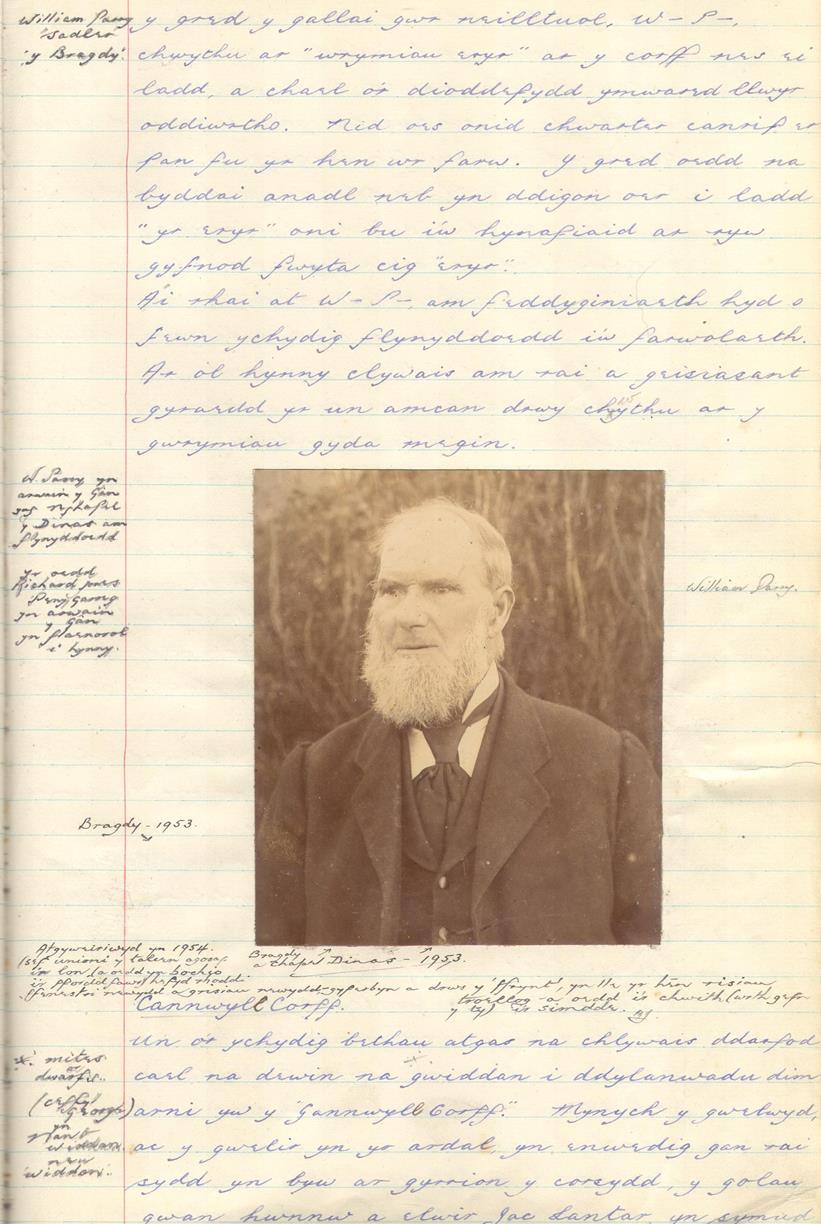 William Parry
'Sadler'
'y Bragdy'.
y gred y gallai gwr neilltuol, W- P-,
chwythu ar "wrymiau eryr" ar y corff nes ei
ladd, a chael o'r dioddefydd ymwared llwyr
oddiwrtho. Nid oes onid chwarter canrif er
pan fu yr hen wr farw. Y gred oedd na
byddai anadl neb yn ddigon oer i ladd
"yr eryr" oni bu i'w hynafiaid ar ryw
gyfnod fwyta cig "eryr".
Ai rhai at W- P-, am feddyginiaeth hyd o
fewn ychydig flynyddoedd i'w farwolaeth.
Ar ol hynny clywais am rai a geisiasant
gyraedd yr un amcan drwy chwythu ar y
gwrymiau gyda megin.
W. Parry yn
arwain y Gân
yng Nghapel
y Dinas am
flynyddoedd
yr oedd
Richard Jones
Penygarreg
yn arwain
y Gân
yn flaenorol
i hynny.
William Parry.
Bragdy - 1953.
Atgyweiriwyd yn 1954.
(sef unioni y talcen agosaf
i'r lon, a oedd yn bochio
i'r ffordd fawr, hefyd rhoddi
ffenestri newydd a grisiau newydd - gyferbyn a drws y 'ffrynt', yn lle yr hen risiau
troellog - a oedd i'r chwith (wrth gefn
y ty) i'r simdde.
Bragdy
a Chapel Dinas - 1953.
Cannwyll Corff.
Un o'r ychydig bethau atgas na chlywais ddarfod
cael na dewin na gwiddan i ddylanwadu dim
arni yw y "Gannwyll Corff". Mynych y gwelwyd,
ac y gwelir yn yr ardal, yn enwedig gan rai
sydd yn byw ar gyrrion y corsydd, y golau
gwan hwnnw a elwir Jac Lantar yn symud
* mites
or
dwarfs.
yn
Nant
widdan
neu
'widdon'.